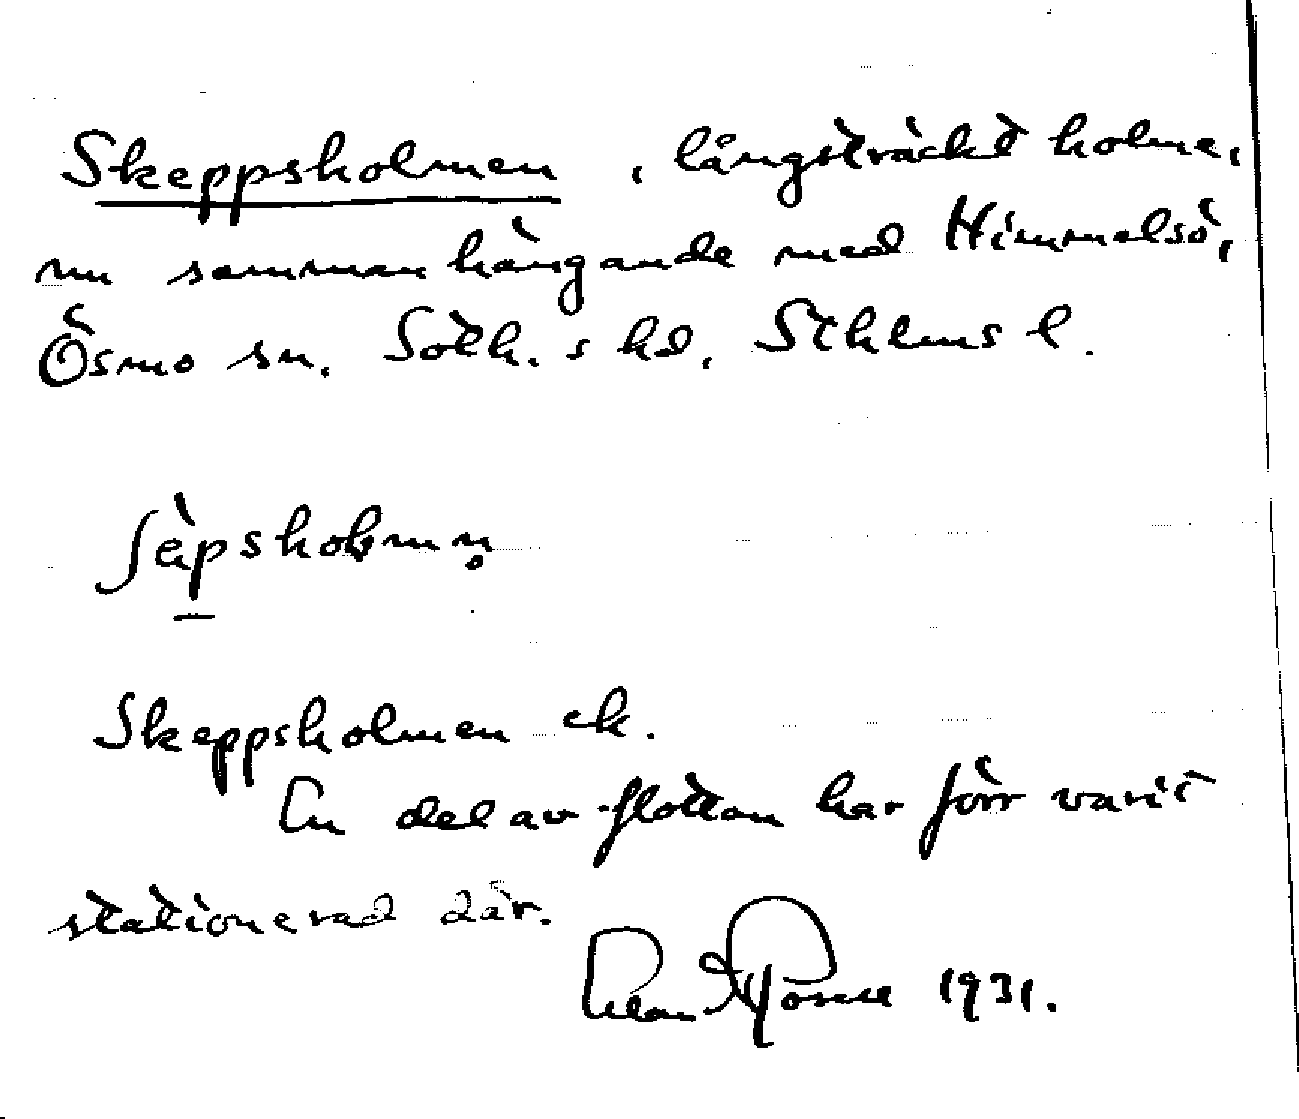 Skeppsholmen, långsträckt holme,
nu sammanhängande med Himmelsö,
Ösmo sn. Söth.s hd, Sthlms l.
Skeppsholmen ek.
En del av flottan har förr varit
stationerad där.
1931.